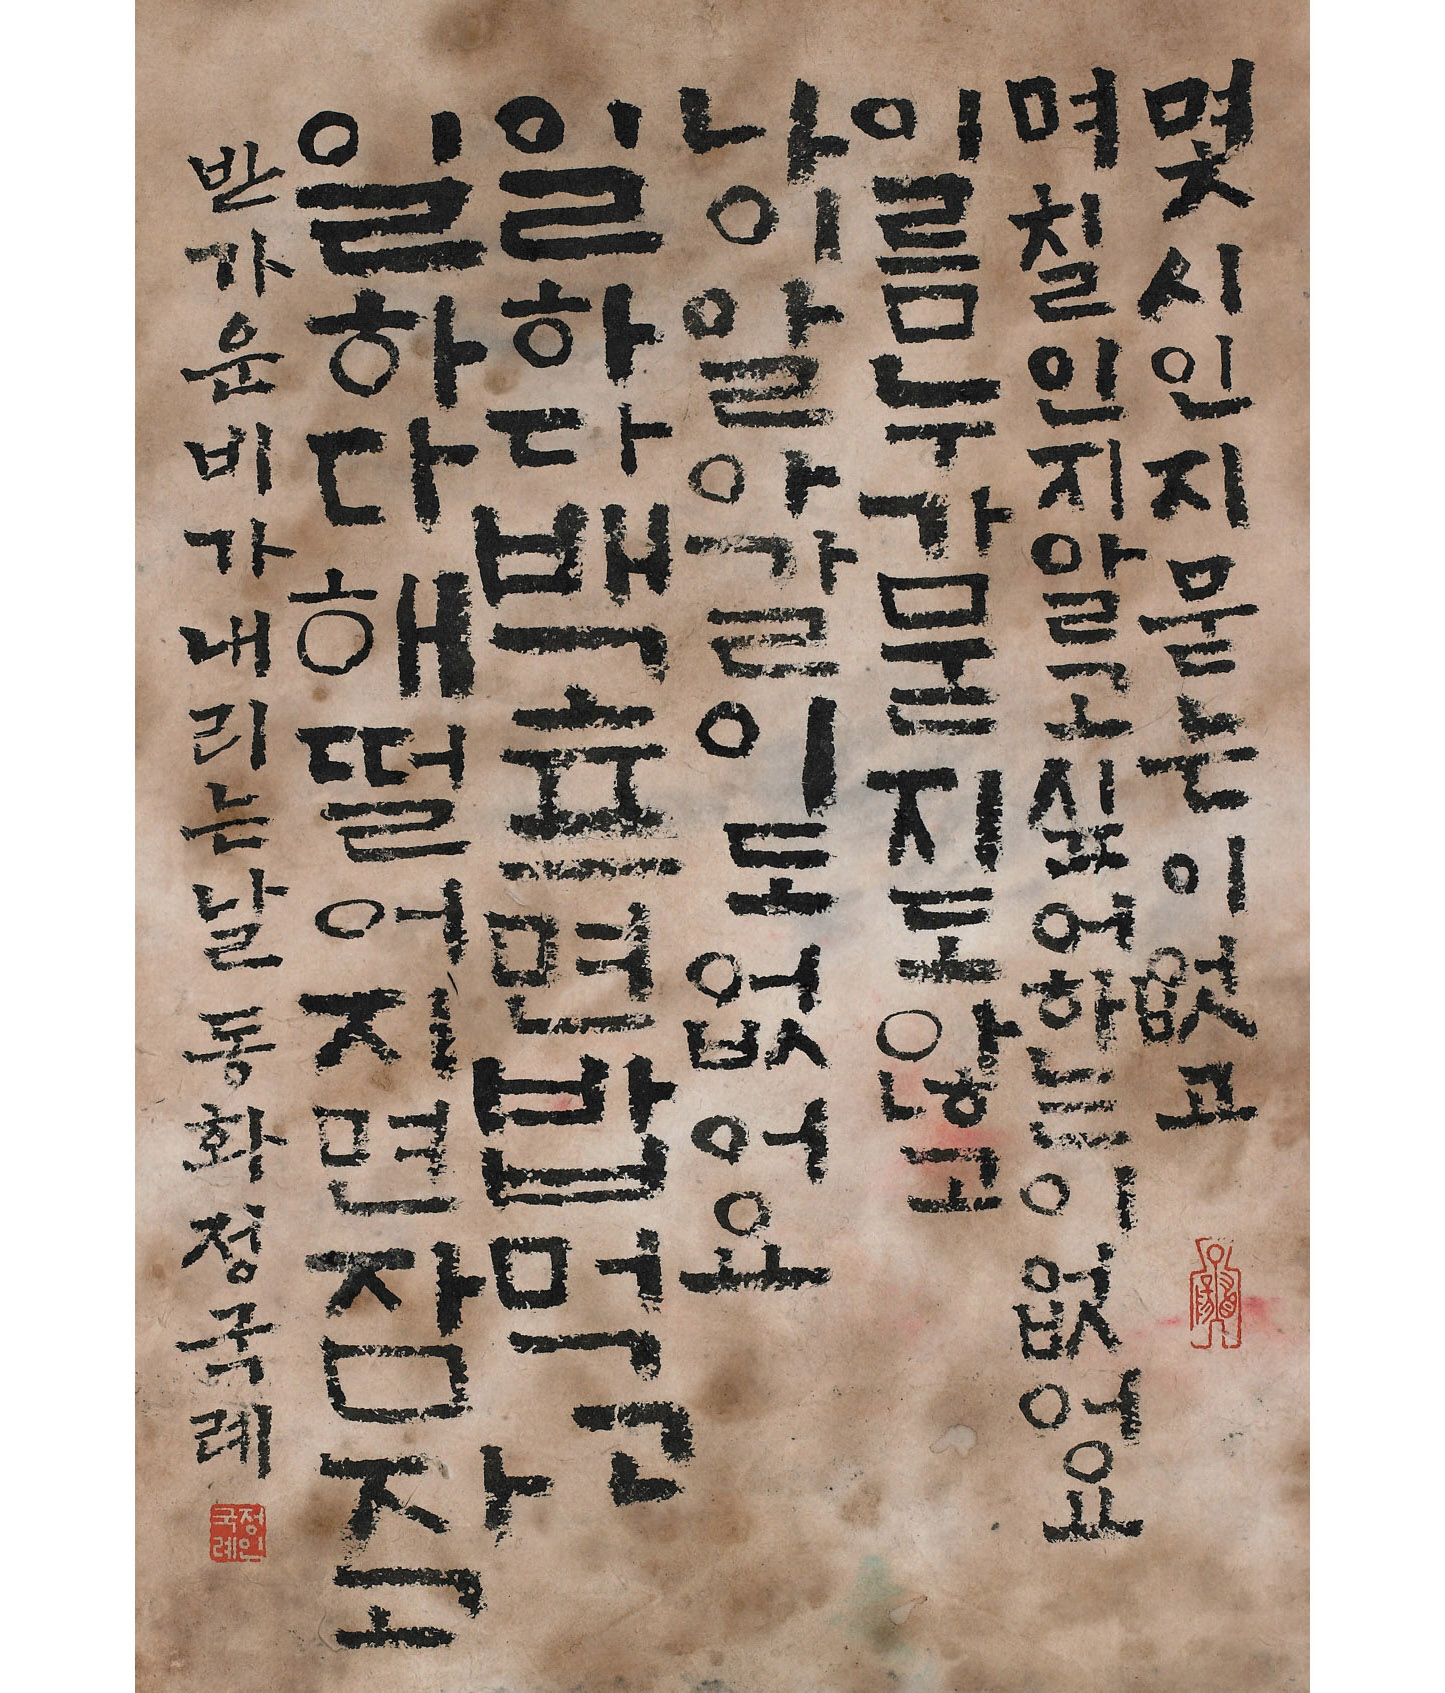 몇시인지묻는이없고
며칠인지알고싶어하는이없어요
이름누가묻지도않고
나이알아갈이도없어요
일하다배고프면밥먹고
일하다해떨어지면잠자고
반가운비가내리는날 동화 정국례
정인
국례